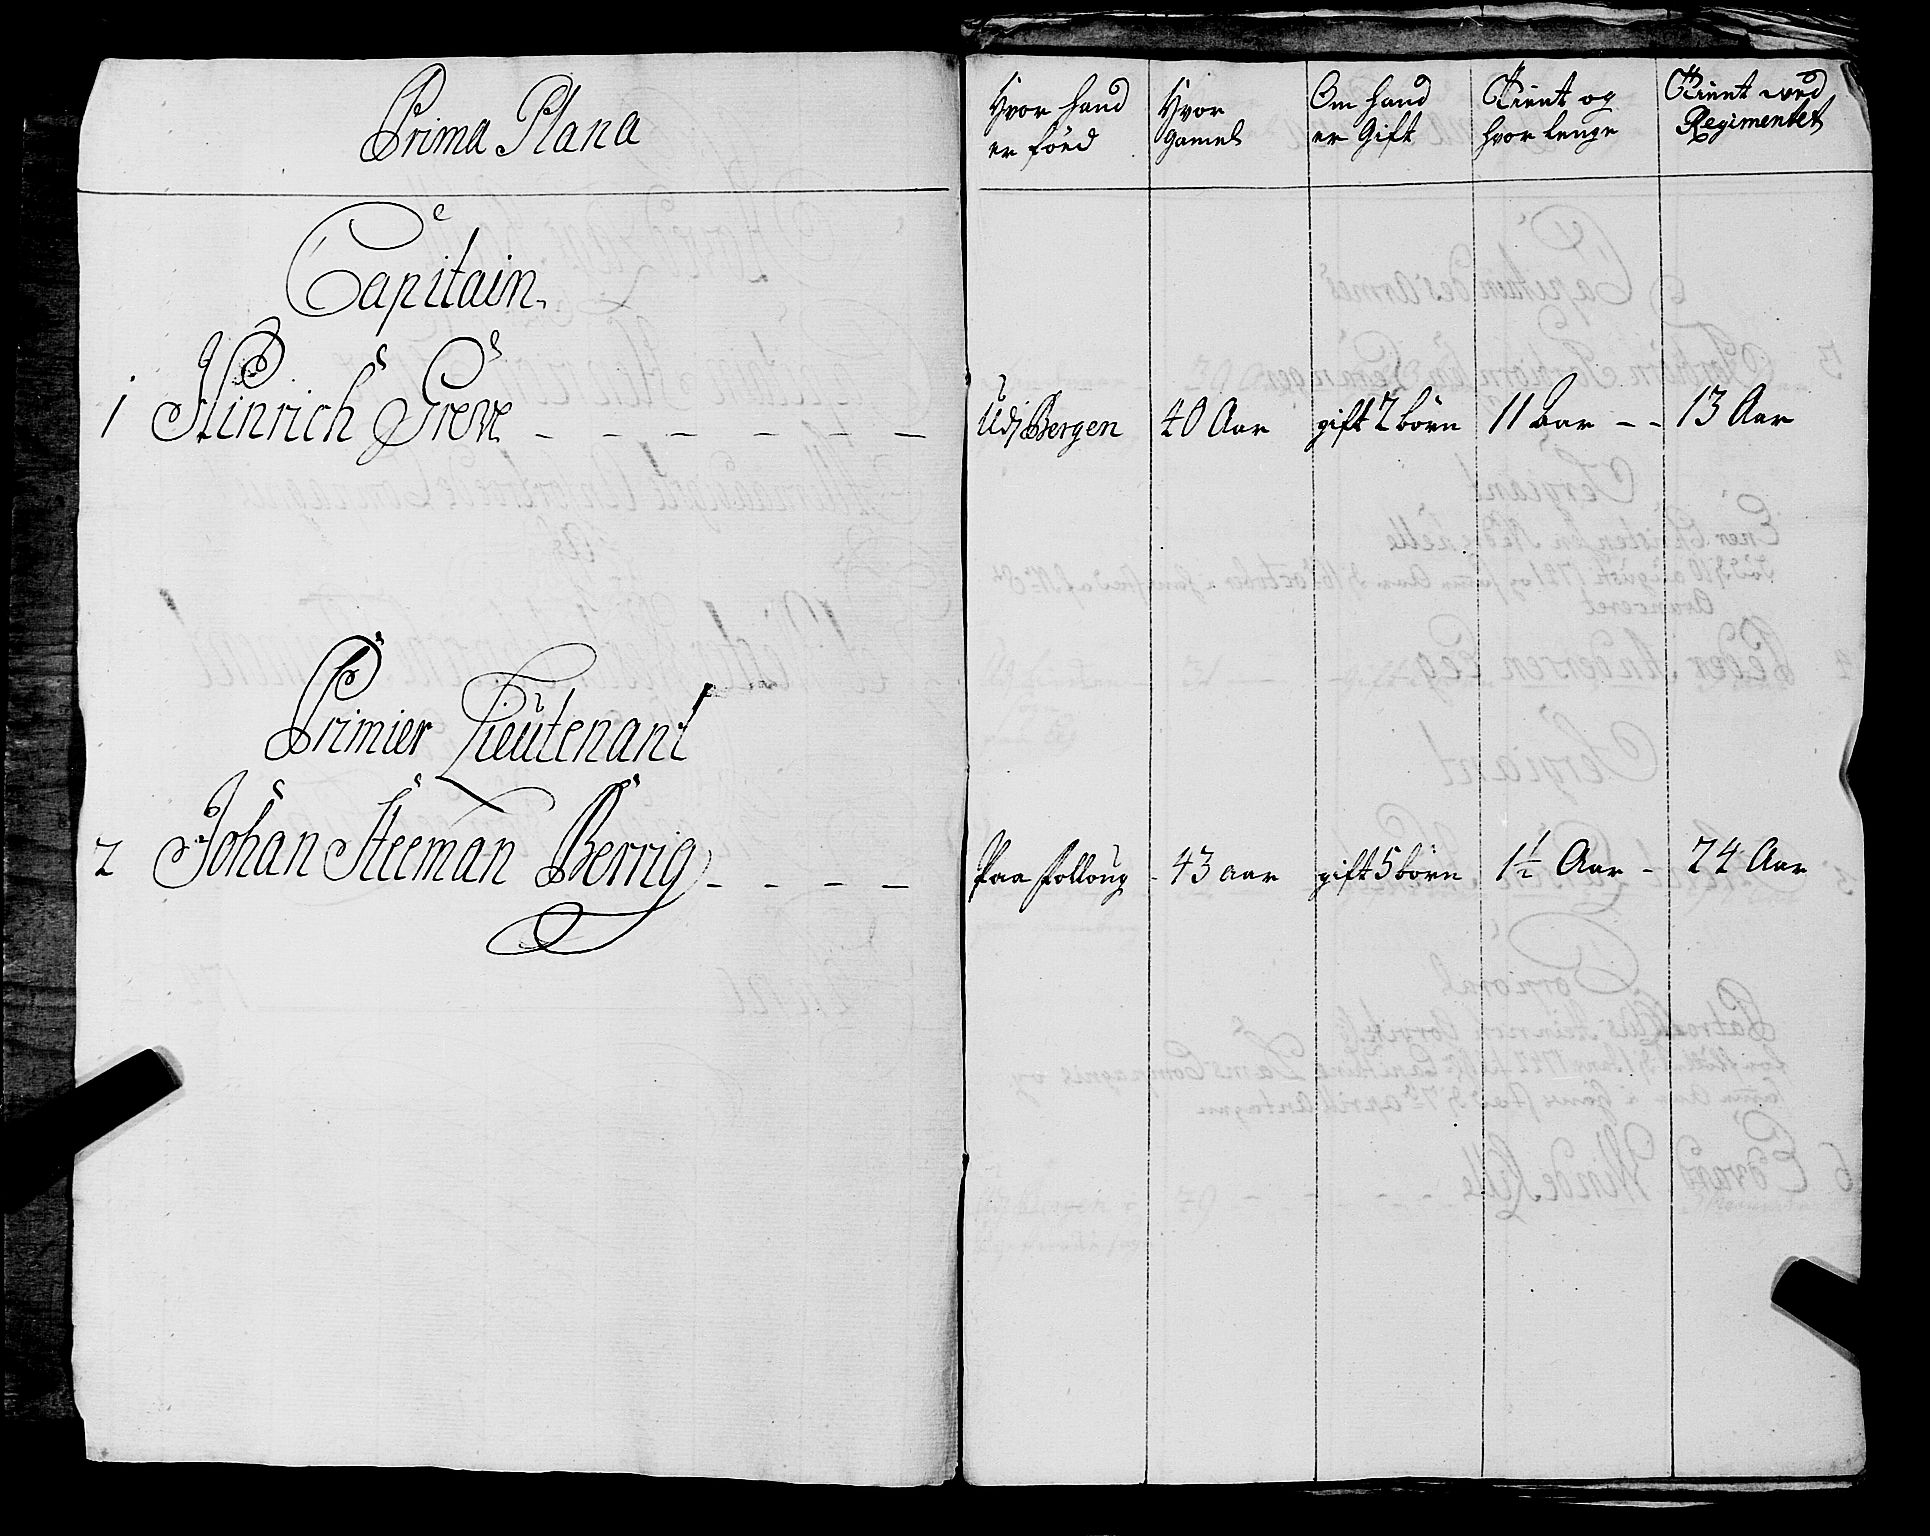 Prima Plana
Hvor hand er föed
Hvor gamel
Om hand er Gift
Tient og hvor lenge
Tient ved Regimentet
Capitain.
1 Hinrich Greve - - - - - - -
Udj Bergen
40 Aar
gift 2 börn
11 Aar - -
13 Aar
Primier Lieutenant
2 Johan Steeman Berrig - - - -
Paa
43 aar
gift 5 börn
1½ Aar -
24 Aar